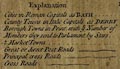 Explanation
Cities in Roman Capitals as BATH
County Towns in Italic Capitals as DERBY
Borough Towns in Print with ye Number of
Members they send to Parliament by Stars
Market Towns
Great or direct Post Roads
Principal cross Roads
Cross Roads